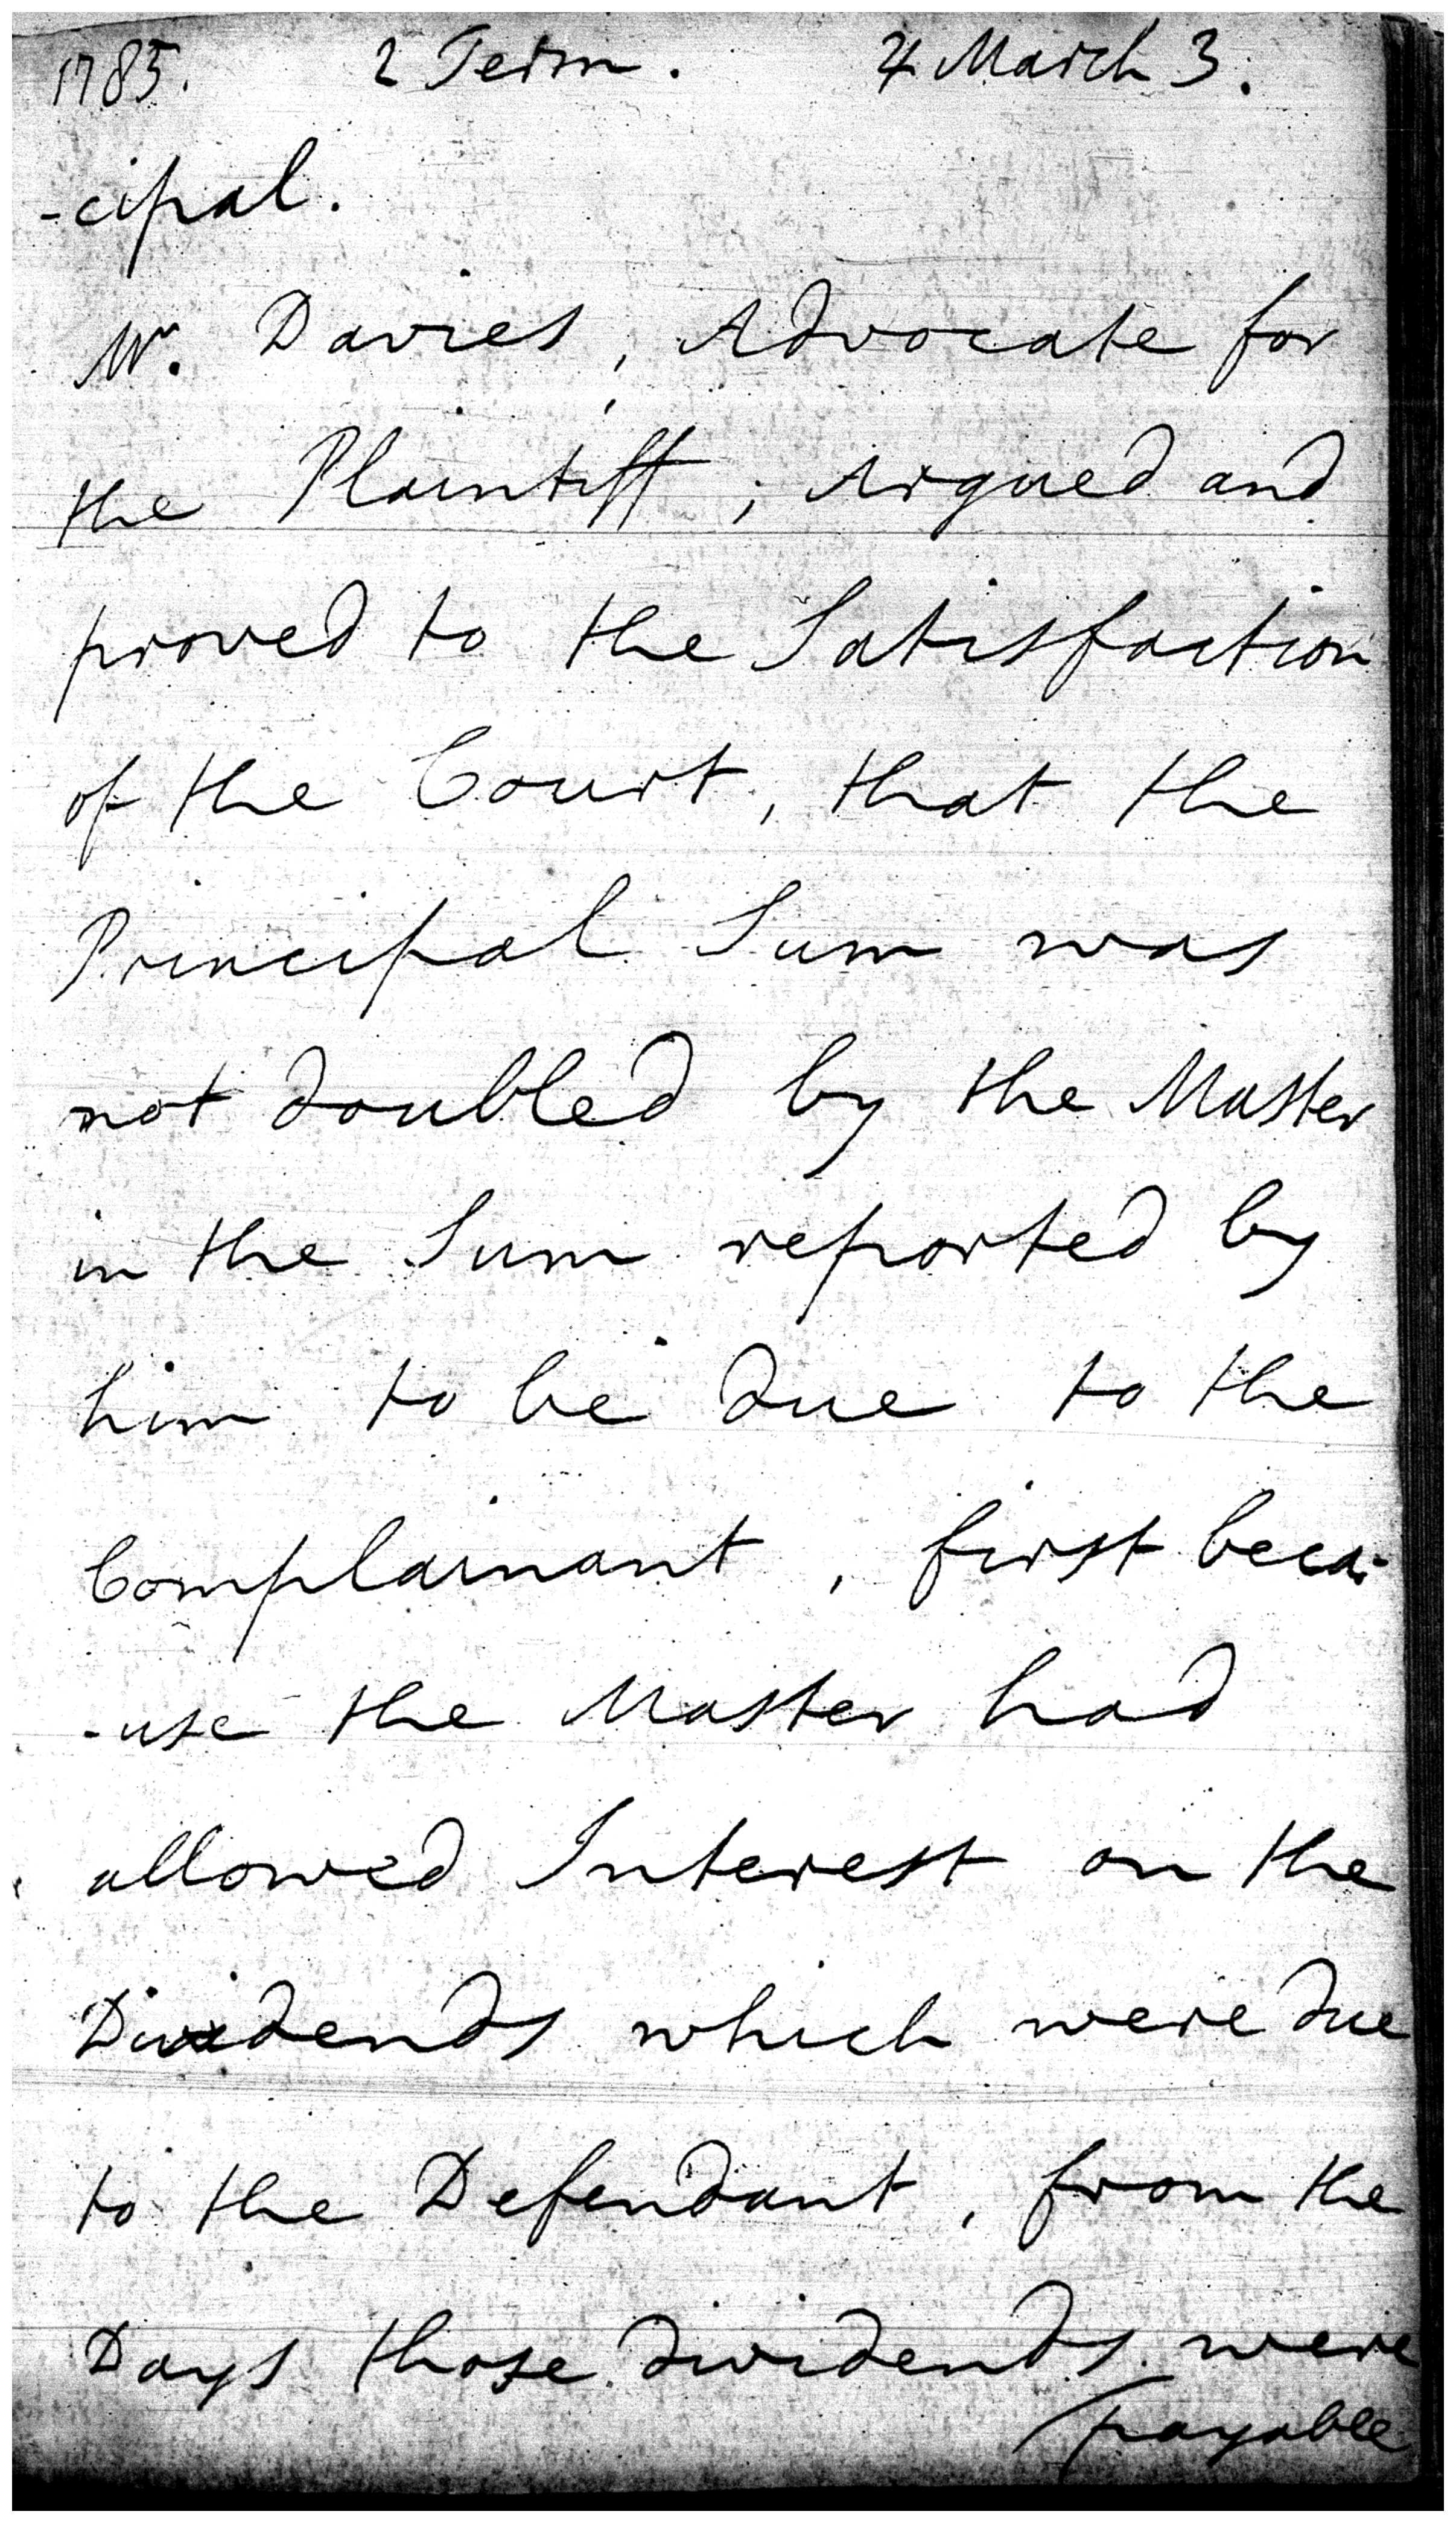 1785. 2 Term. 4 March 3.
-cipal.
Mr. Davies, Advocate for
the Plaintiff; Argued and
proved to the Satisfaction
of the Court, that the
Principal Sum was
not doubled by the Master
in the Sum reported by
him to be due to the
Complainant, first beca-
-use the Master had
allowed Interest on the
Dividends which were due
to the Defendant, from the
Days those dividends were
payable